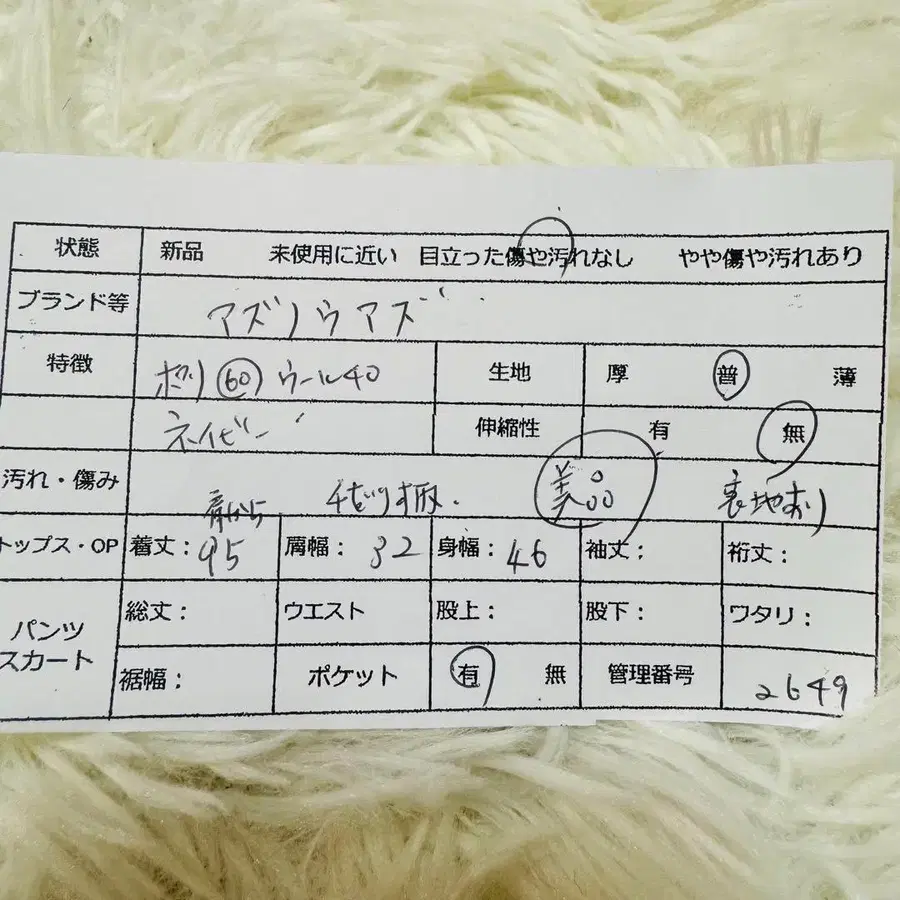 状態 新品 未使用に近い 目立った傷や汚れなし やや傷や汚れあり
ブランド等 アズノウアズ
特徴 ポリ60 ウール40 生地 厚 普 薄
ネイビー 伸縮性 有 無
汚れ・傷み チビツ柄. 美品 裏地あり
肩から
トップス・OP 着丈: 95 肩幅: 32 身幅: 46 袖丈: 裄丈:
パンツ 総丈: ウエスト 股上: 股下: ワタリ:
スカート 裾幅: ポケット 有 無 管理番号 2649